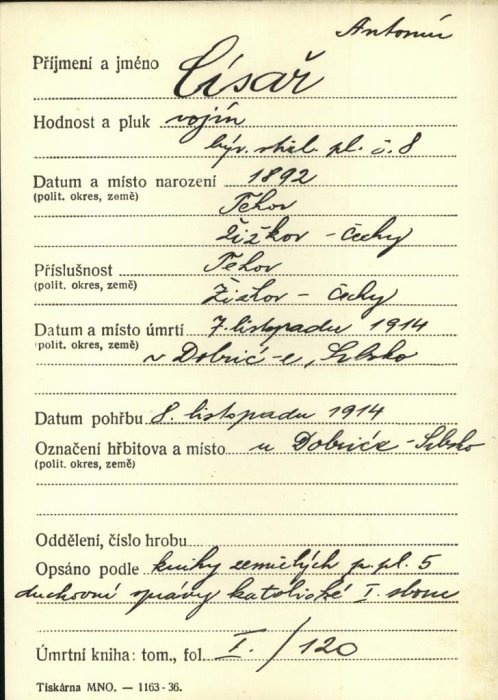 Antonín
Příjmení a jméno Císař
Hodnost a pluk vojín
býv. střel. pl. č. 8
Datum a místo narození 1892
(polit. okres, země) Tehov
Žižkov - Čechy
Příslušnost Tehov
(polit. okres, země) Žižkov - Čechy
Datum a místo úmrtí 7. listopadu 1914
(polit. okres, země) v Dobrić-e, Srbsko
Datum pohřbu 8. listopadu 1914
Označení hřbitova a místo u Dobriće - Srbsko
(polit. okres, země)
Oddělení, číslo hrobu
Opsáno podle knihy zemřelých p. pl. 5
duchovní správy katolické I. sbom
Úmrtní kniha: tom., fol. I. / 120
Tiskárna MNO. — 1163-36.